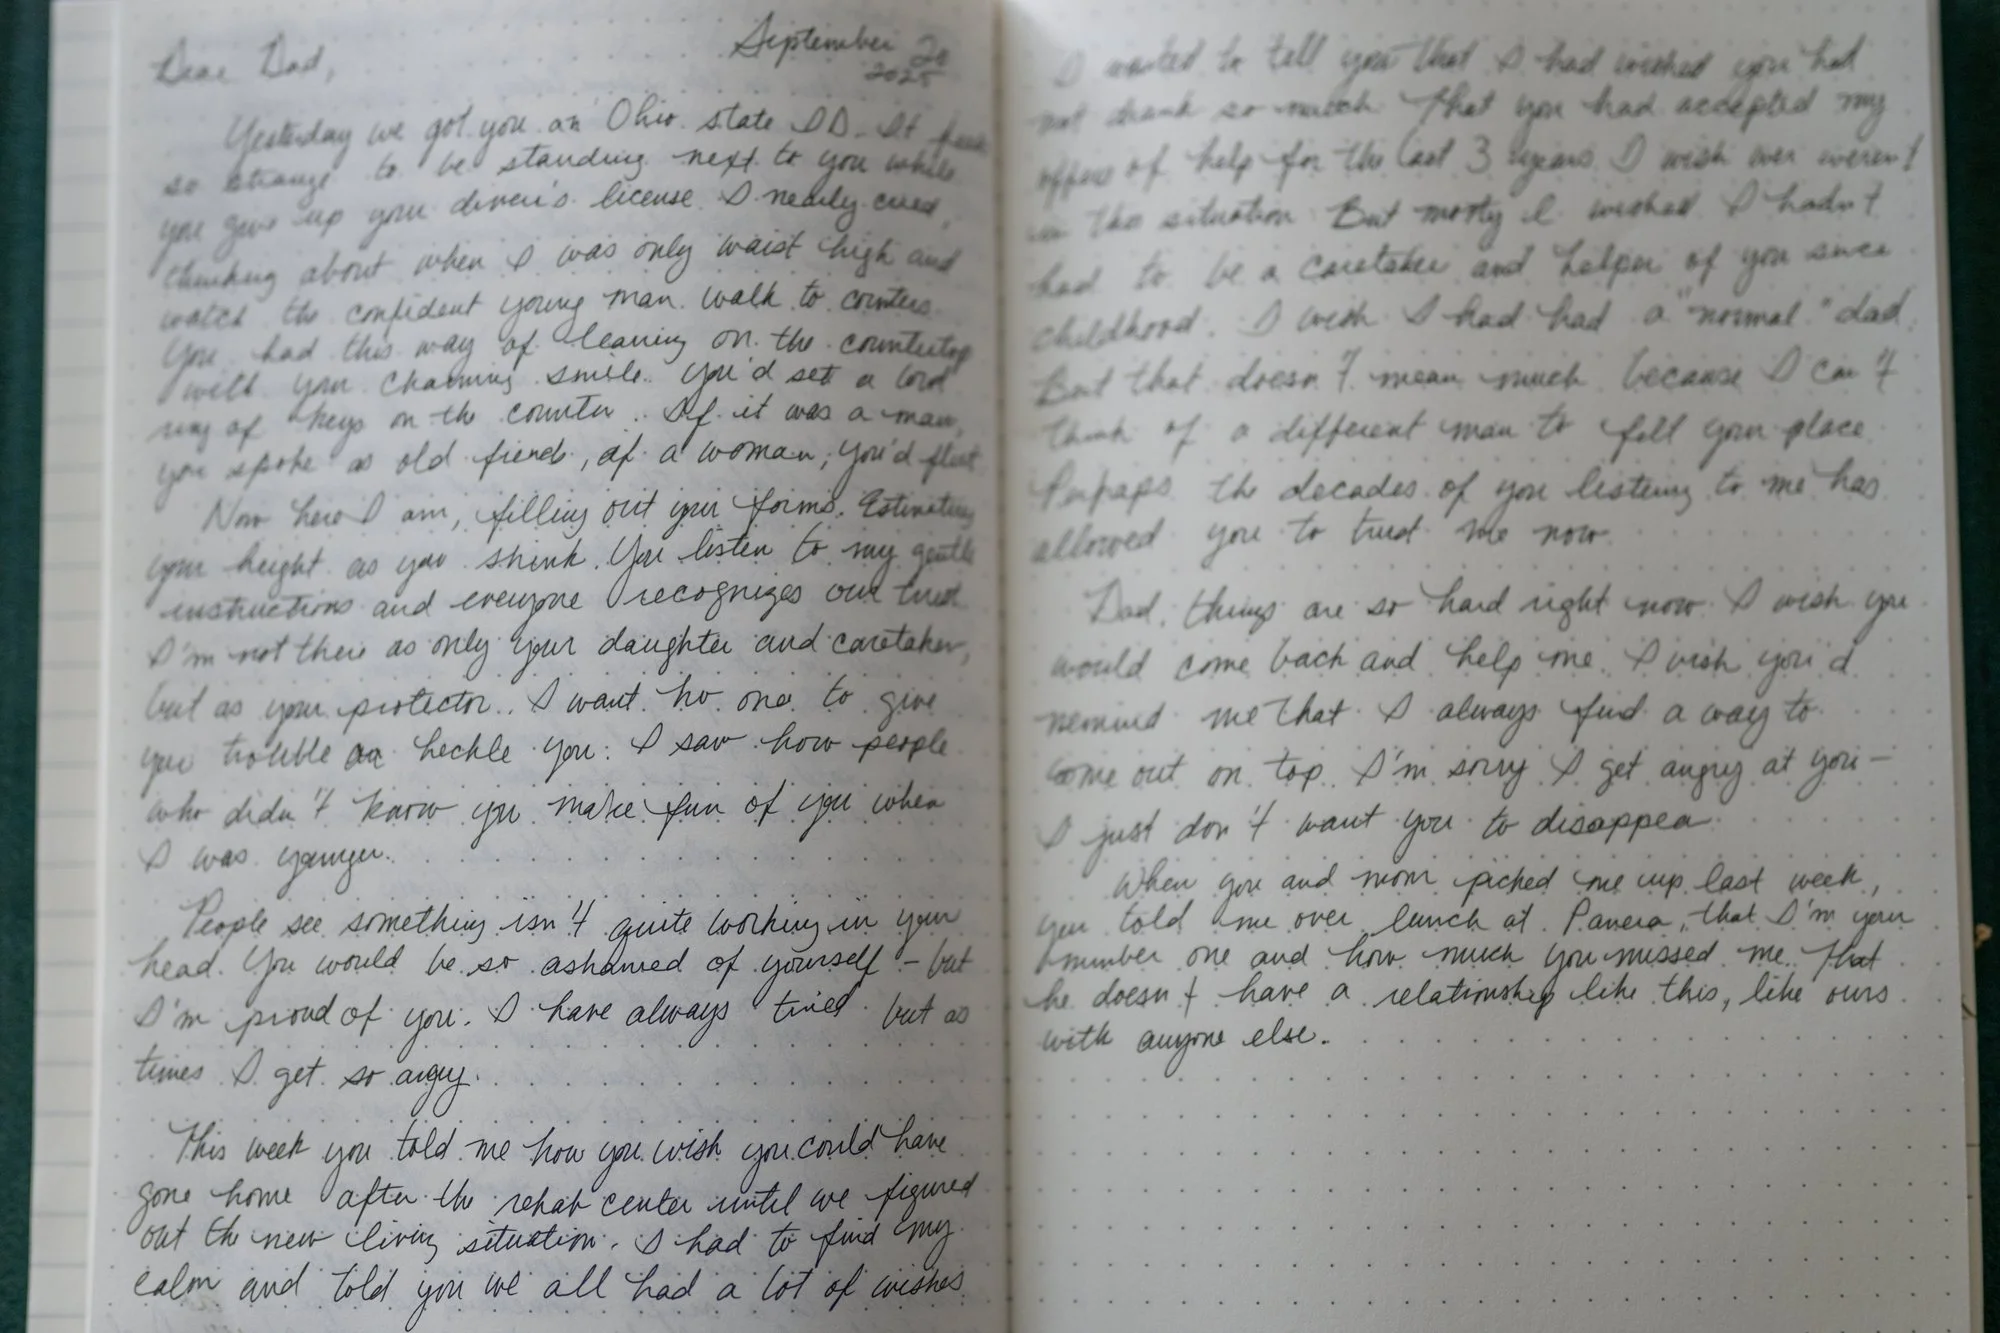 September 20
2025
Dear Dad,
Yesterday we got you an Ohio state ID. It feels
so strange to be standing next to you while
you give up your driver's license. I nearly cried,
thinking about when I was only waist high and
watch the confident young man walk to counters.
You had this way of leaning on the countertop
with your charming smile. You'd set a
ring of keys on the counter. If it was a man,
you spoke as old friends, if a woman, you'd flirt
Now here I am, filling out your forms. Estimating
your height as you shrink. You listen to my gentle
instructions and everyone recognizes our
I'm not there as only your daughter and caretaker,
but as your protector. I want no one to give
you trouble or heckle you. I saw how people
who didn't know you make fun of you when
I was younger.
People see something isn't quite working in your
head. You would be so ashamed of yourself - but
I'm proud of you. I have always tried but as
times I get so angry.
This week you told me how you wish you could have
gone home after the rehab center until we figured
out the new living situation. I had to find my
calm and told you we all had a lot of wishes
I wanted to tell you that I had wished you had
not drank so much. That you had accepted my
offers of help for the last 3 years. I wish we weren't
in this situation. But mostly I wished I hadn't
had to be a caretaker and helper of you since
childhood. I wish I had had a "normal" dad.
But that doesn't mean much because I can't
think of a different man to fill your place.
Perhaps the decades of you listening to me has
allowed you to trust me now.
Dad, things are so hard right now. I wish you
would come back and help me. I wish you'd
remind me that I always find a way to
come out on top. I'm sorry I get angry at you -
I just don't want you to disappear.
When you and mom picked me up last week,
you told me over lunch at Panera, that I'm your
number one and how much you missed me. That
he doesn't have a relationship like this, like ours
with anyone else.